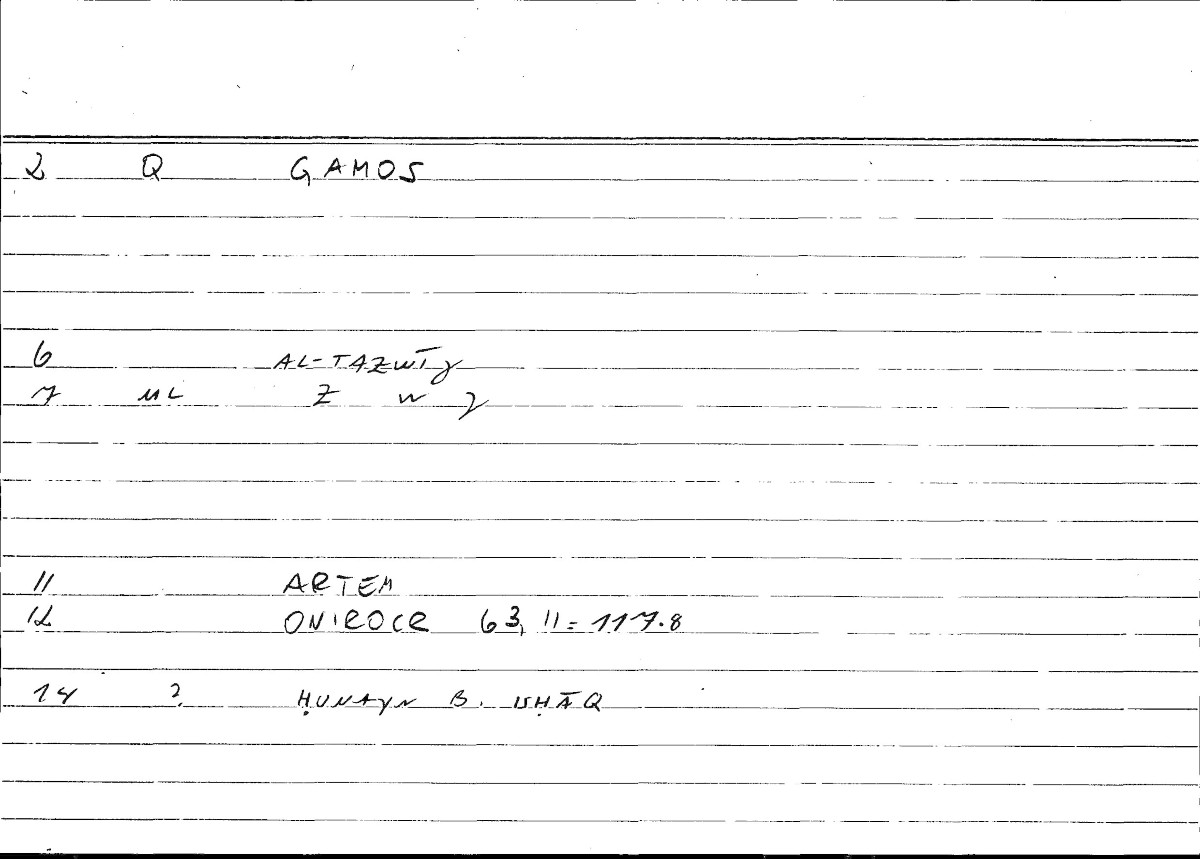 2 Q GAMOS
6 AL-TAZWĪǧ
7 UL Z W ǧ
11 ARTEM
12 ONIROCR 63, 11 = 117.8
14 ? ḤUNAYN B. ISḤĀQ